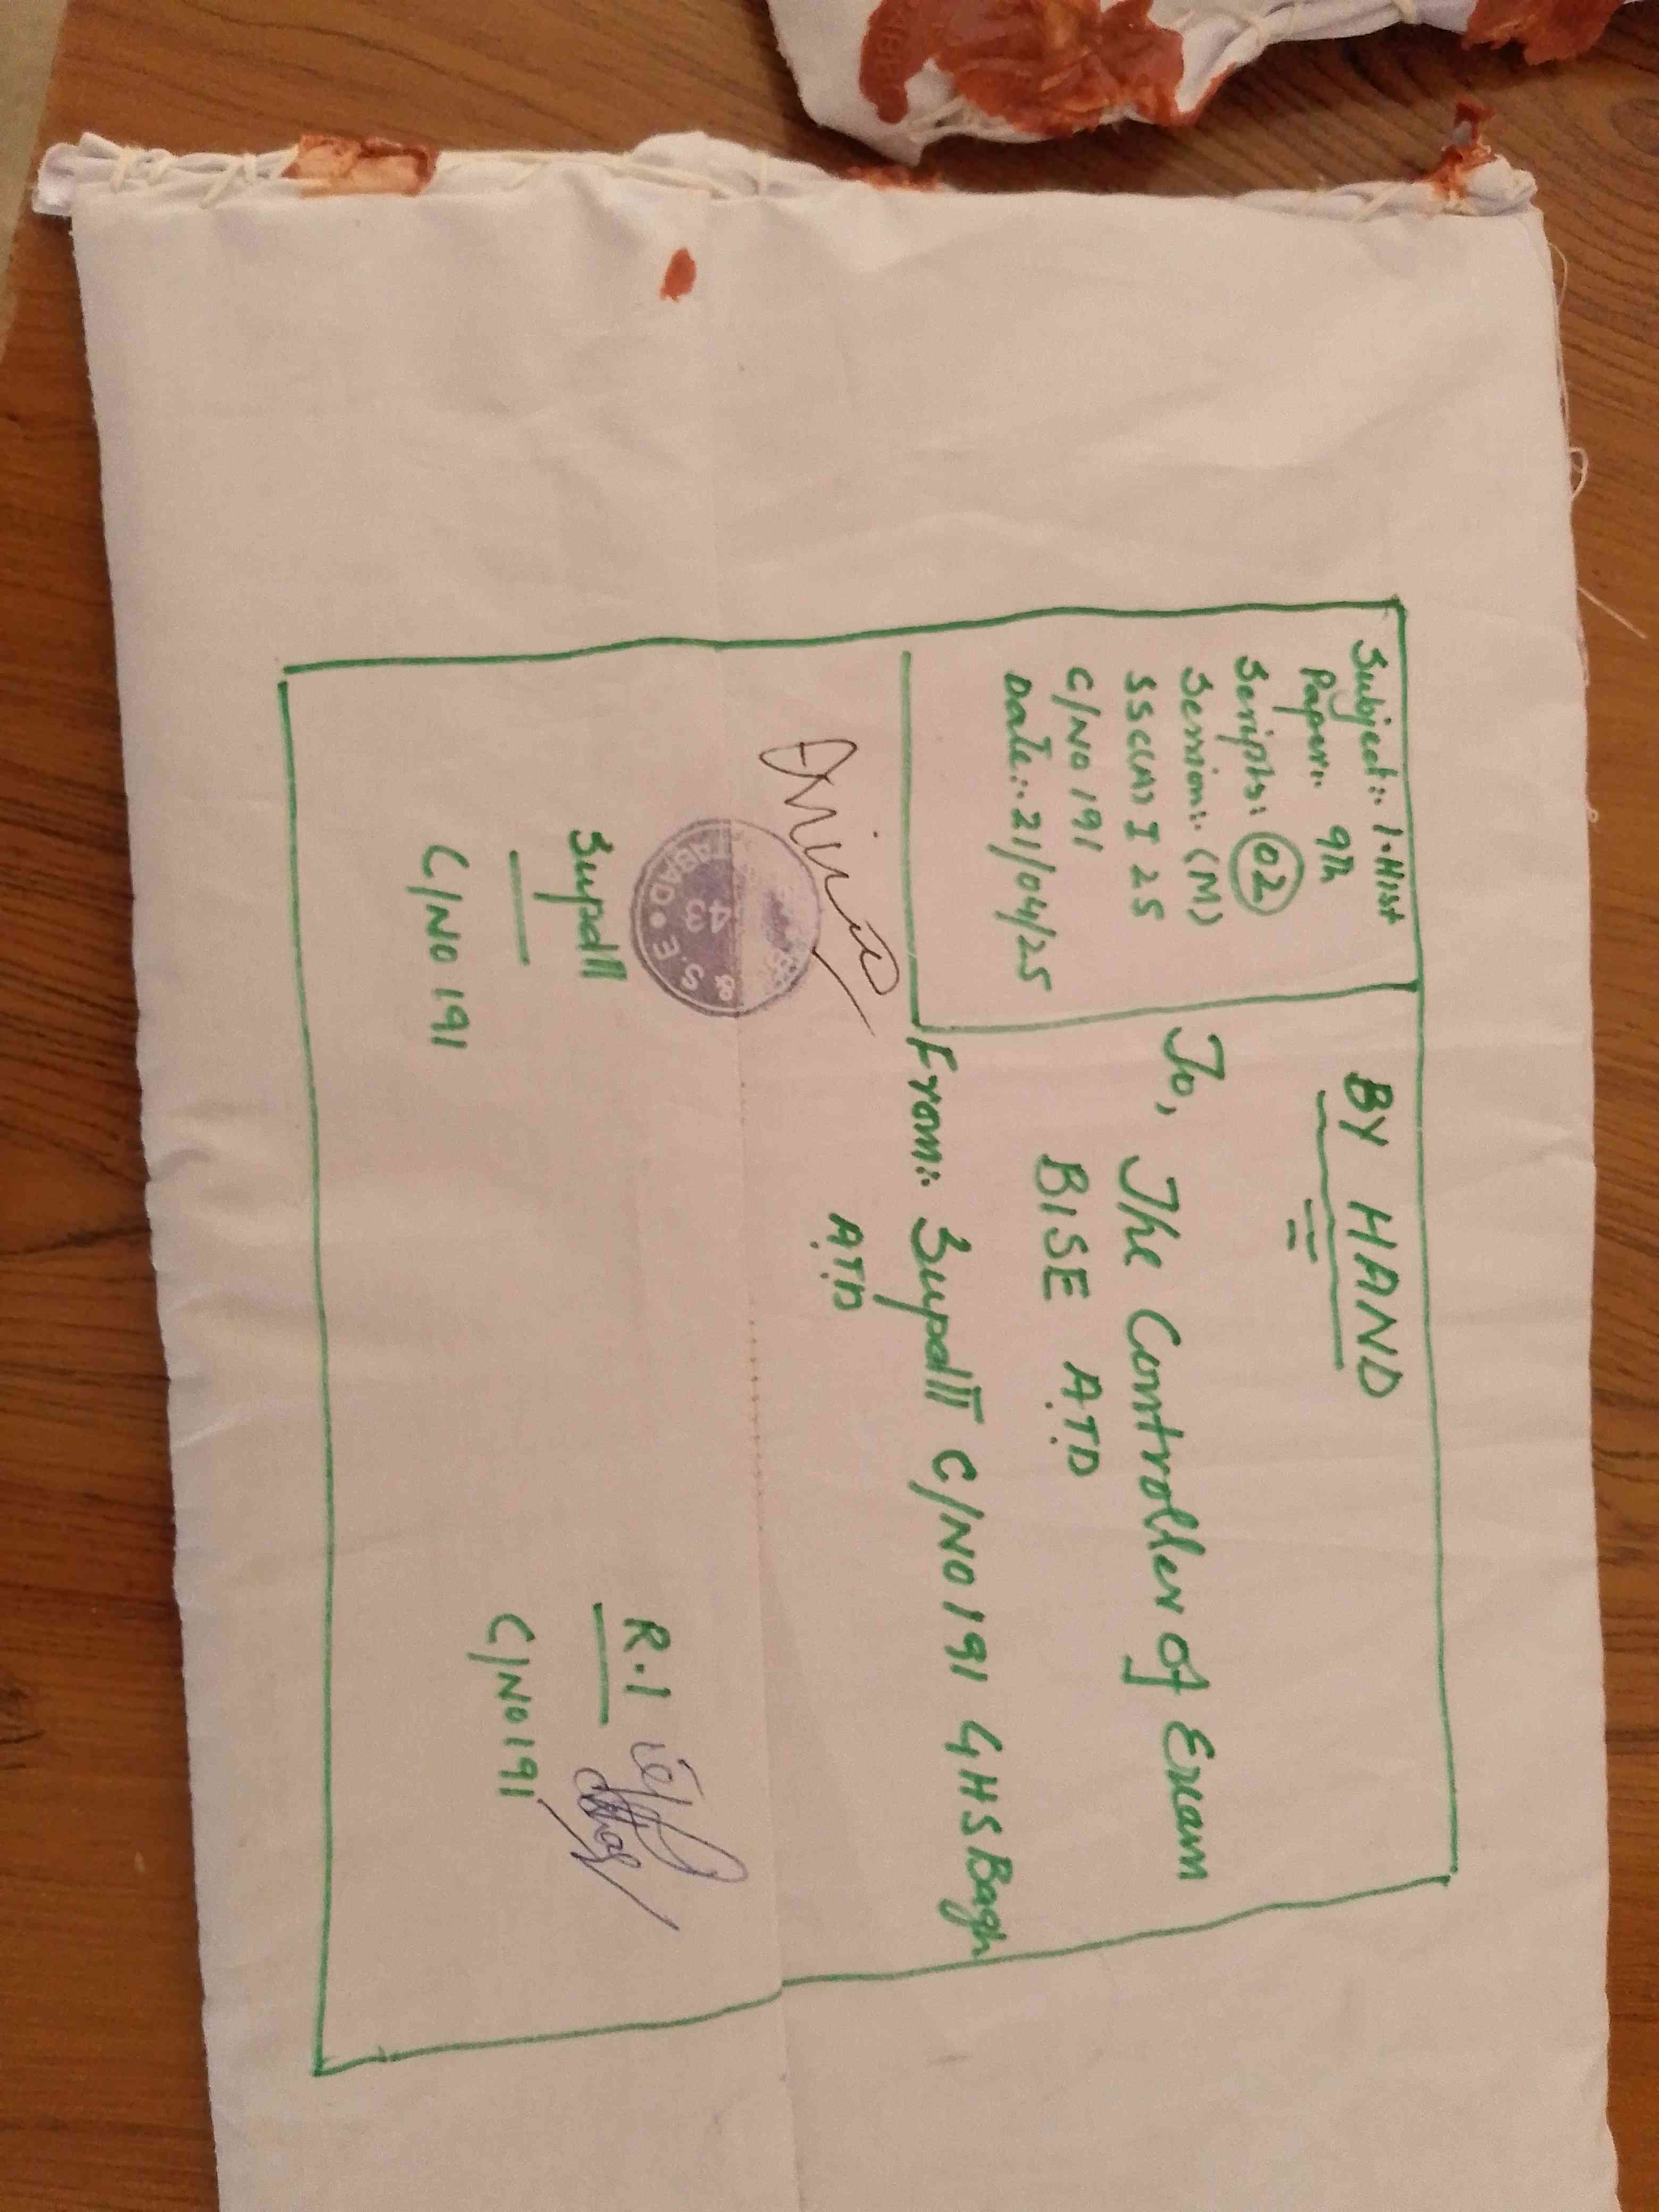 Subject:- I.Hist
Paper:- 9th
Scripts: 02
Session:- (M)
SSC(A) I 25
C/No 191
Date:- 21/04/25
BY HAND
To, The Controller of Exam
BISE A.T.D
From:- Supdtt C/No 191 GHS Bagh
A.T.D
& S.E
43
TABAD
Supdtt
C/No 191
R.I
C/No 191